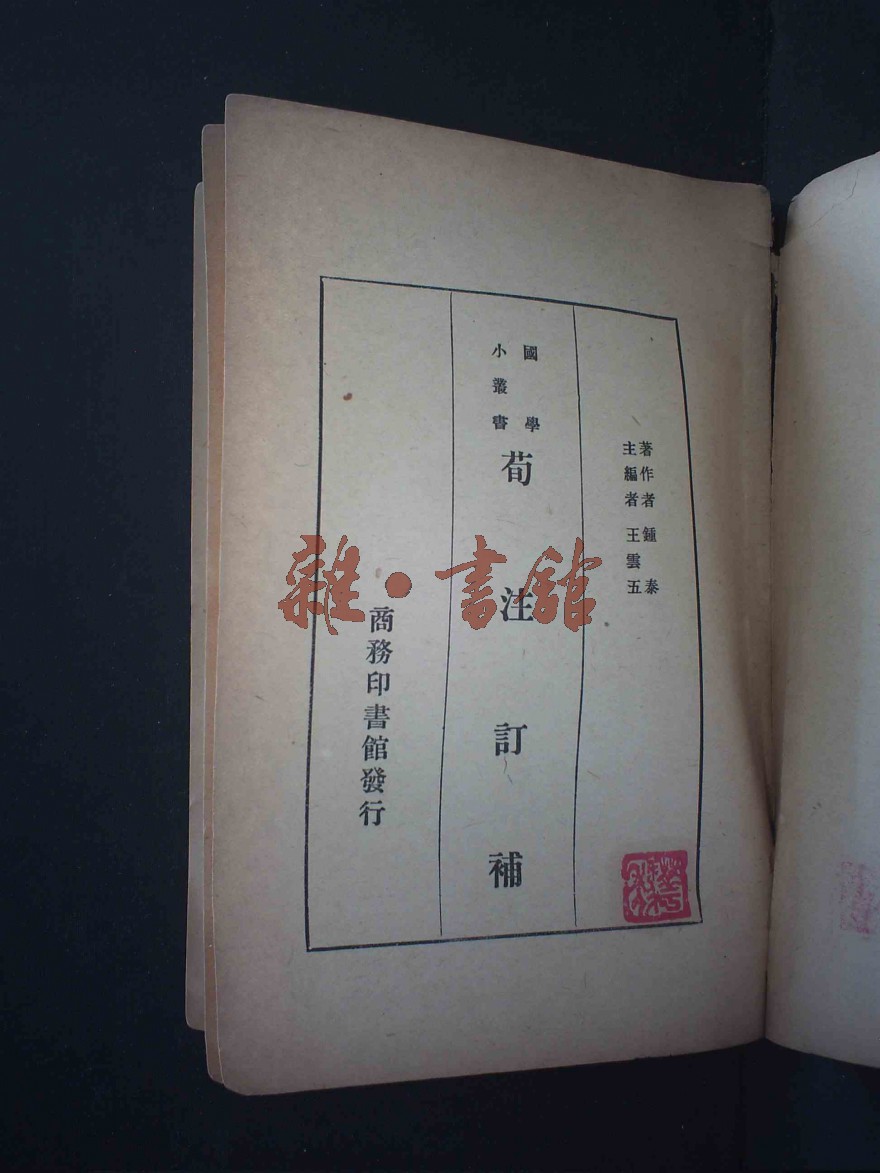 著作者 鍾泰
主編者 王雲五
國學
小叢書
荀注訂補
商務印書館發行
雜·書館